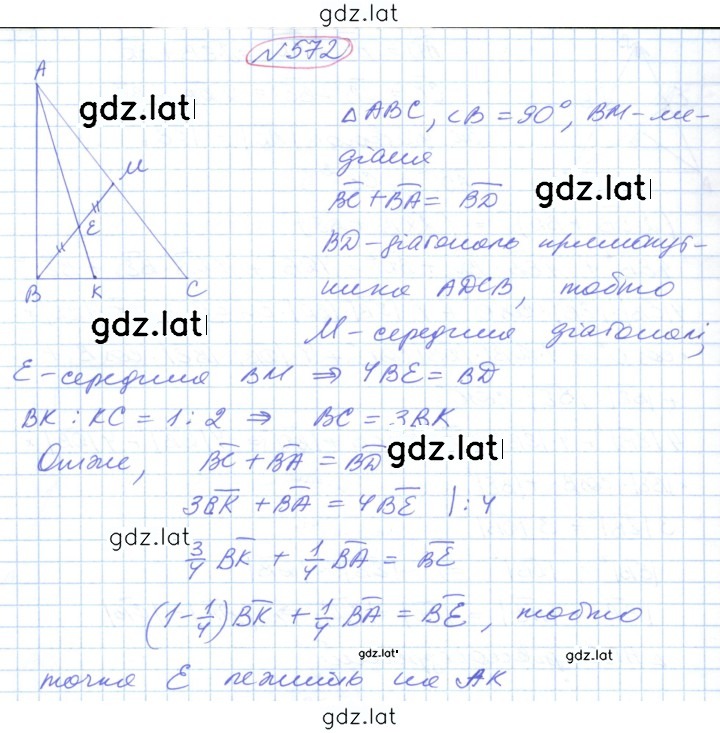 gdz.lat
№572
A
gdz.lat
△ABC, ∠B = 90°, BM - ме-
M
діана
gdz.lat
BC + BA = BD
E
BD - діагональ прямокут-
B K C
ника ADCB, тобто
gdz.lat
M - середина діагоналі,
E - середина BM ⇒ 4BE = BD
BK : KC = 1 : 2 ⇒ BC = 3BK
gdz.lat
Отже, BC + BA = BD
3BK + BA = 4BE | : 4
gdz.lat
3/4 BK + 1/4 BA = BE
(1 - 1/4)BK + 1/4 BA = BE, тобто
gdz.lat
gdz.lat
точка E лежить на AK
gdz.lat